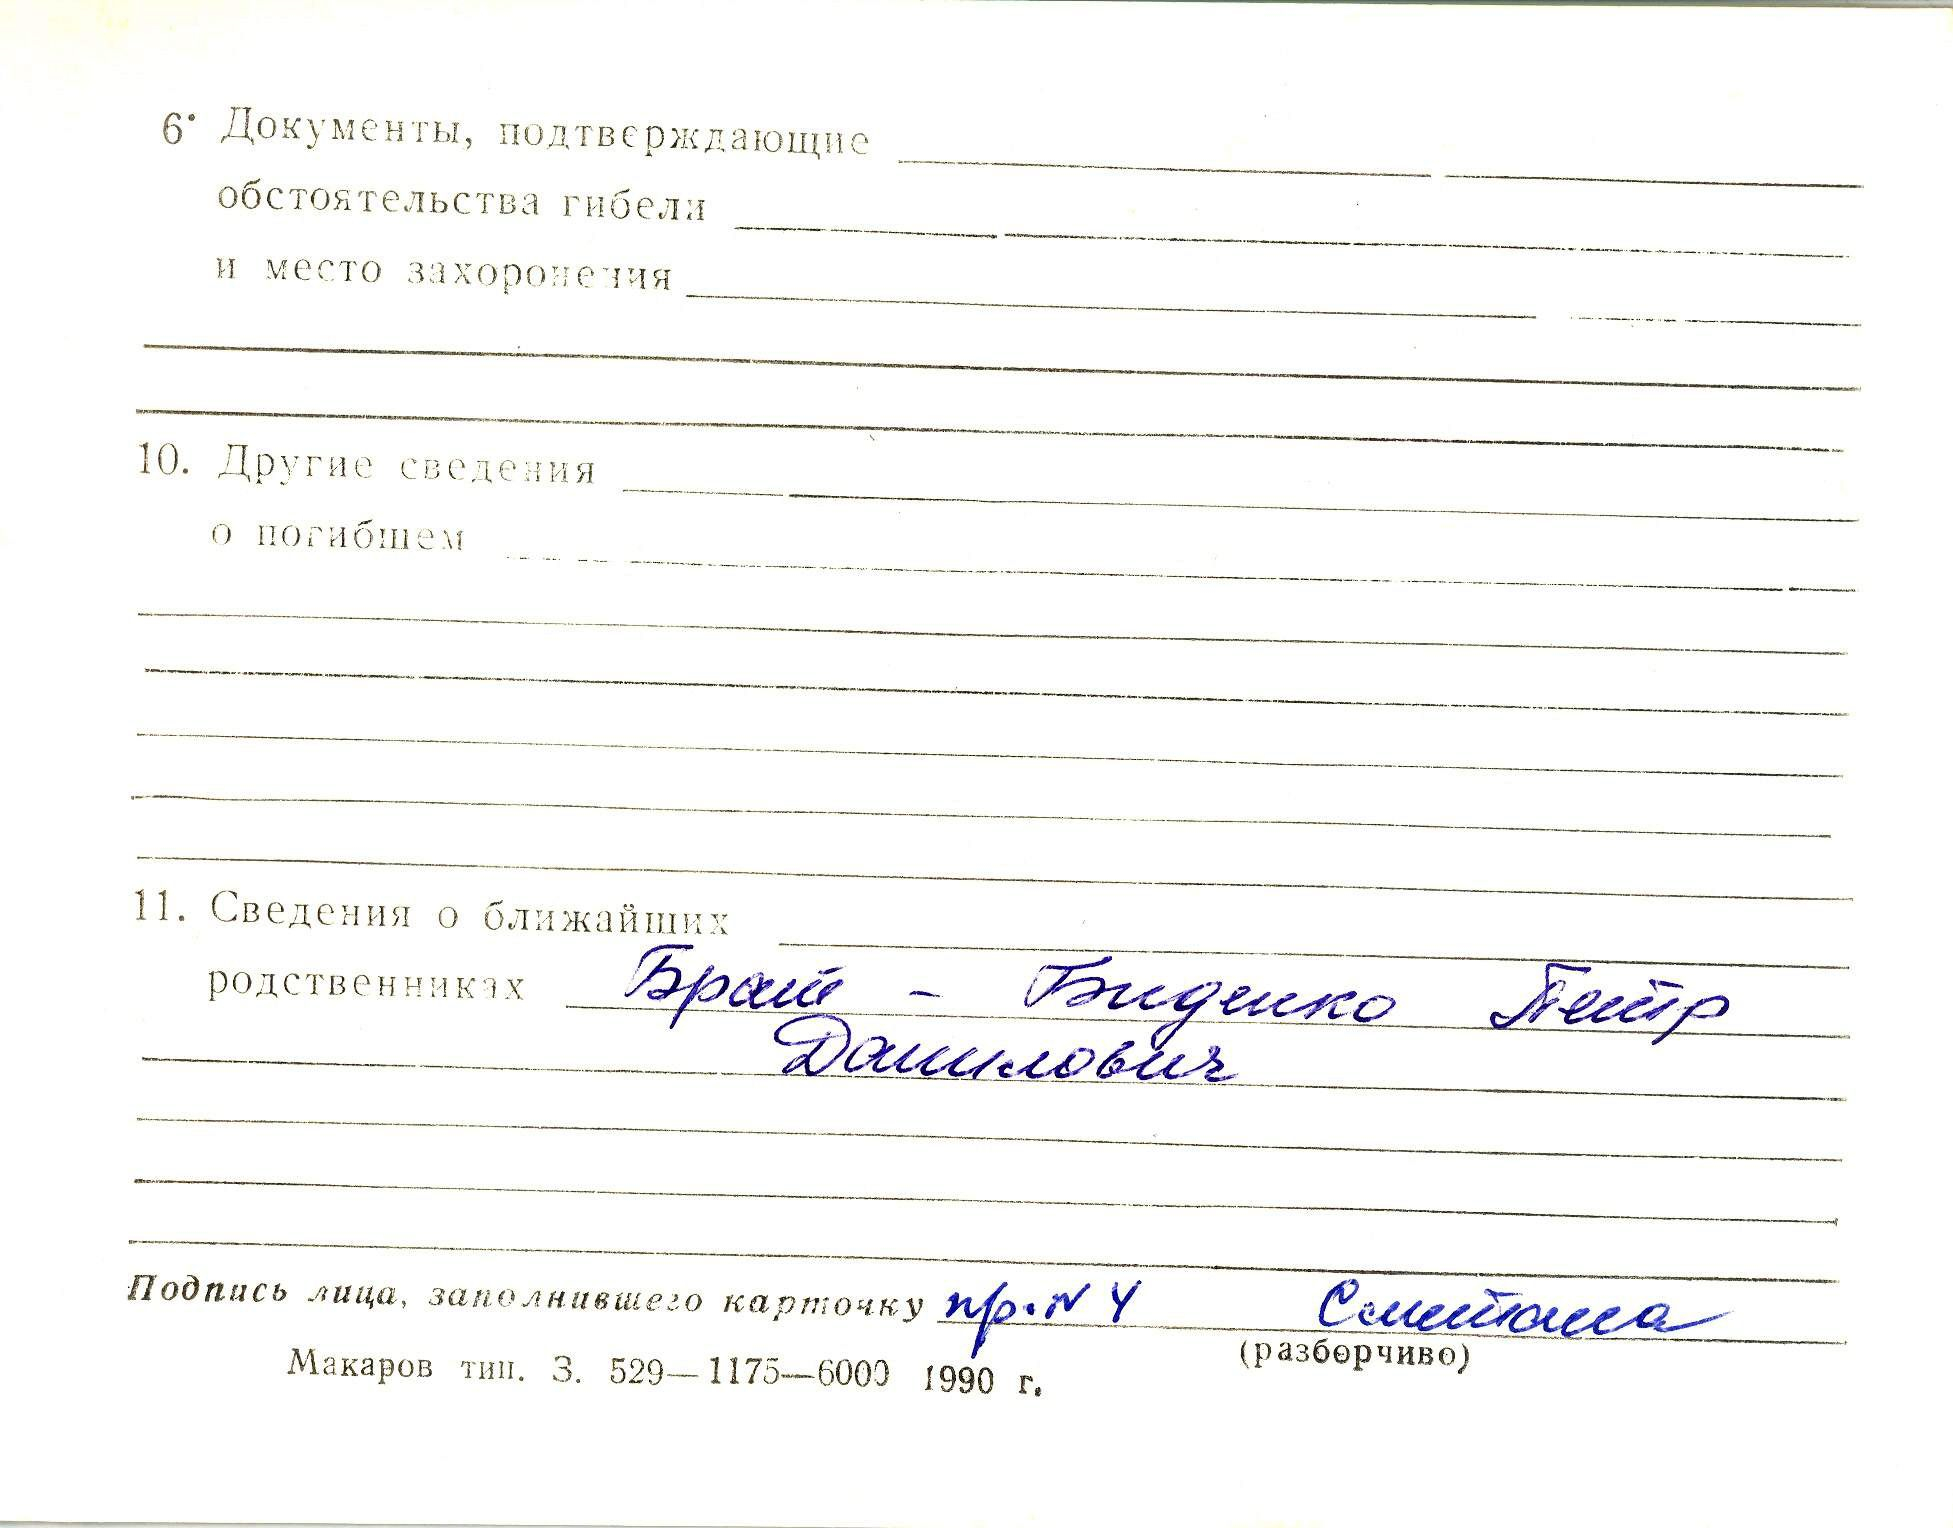 6. Документы, подтверждающие
обстоятельства гибели
и место захоронения
10. Другие сведения
о погибшем
11. Сведения о ближайших
родственниках Брат - Биденко Петр
Данилович
Подпись лица, заполнившего карточку пр. N 4 Сметана
(разборчиво)
Макаров тип. З. 529—1175—6000 1990 г.